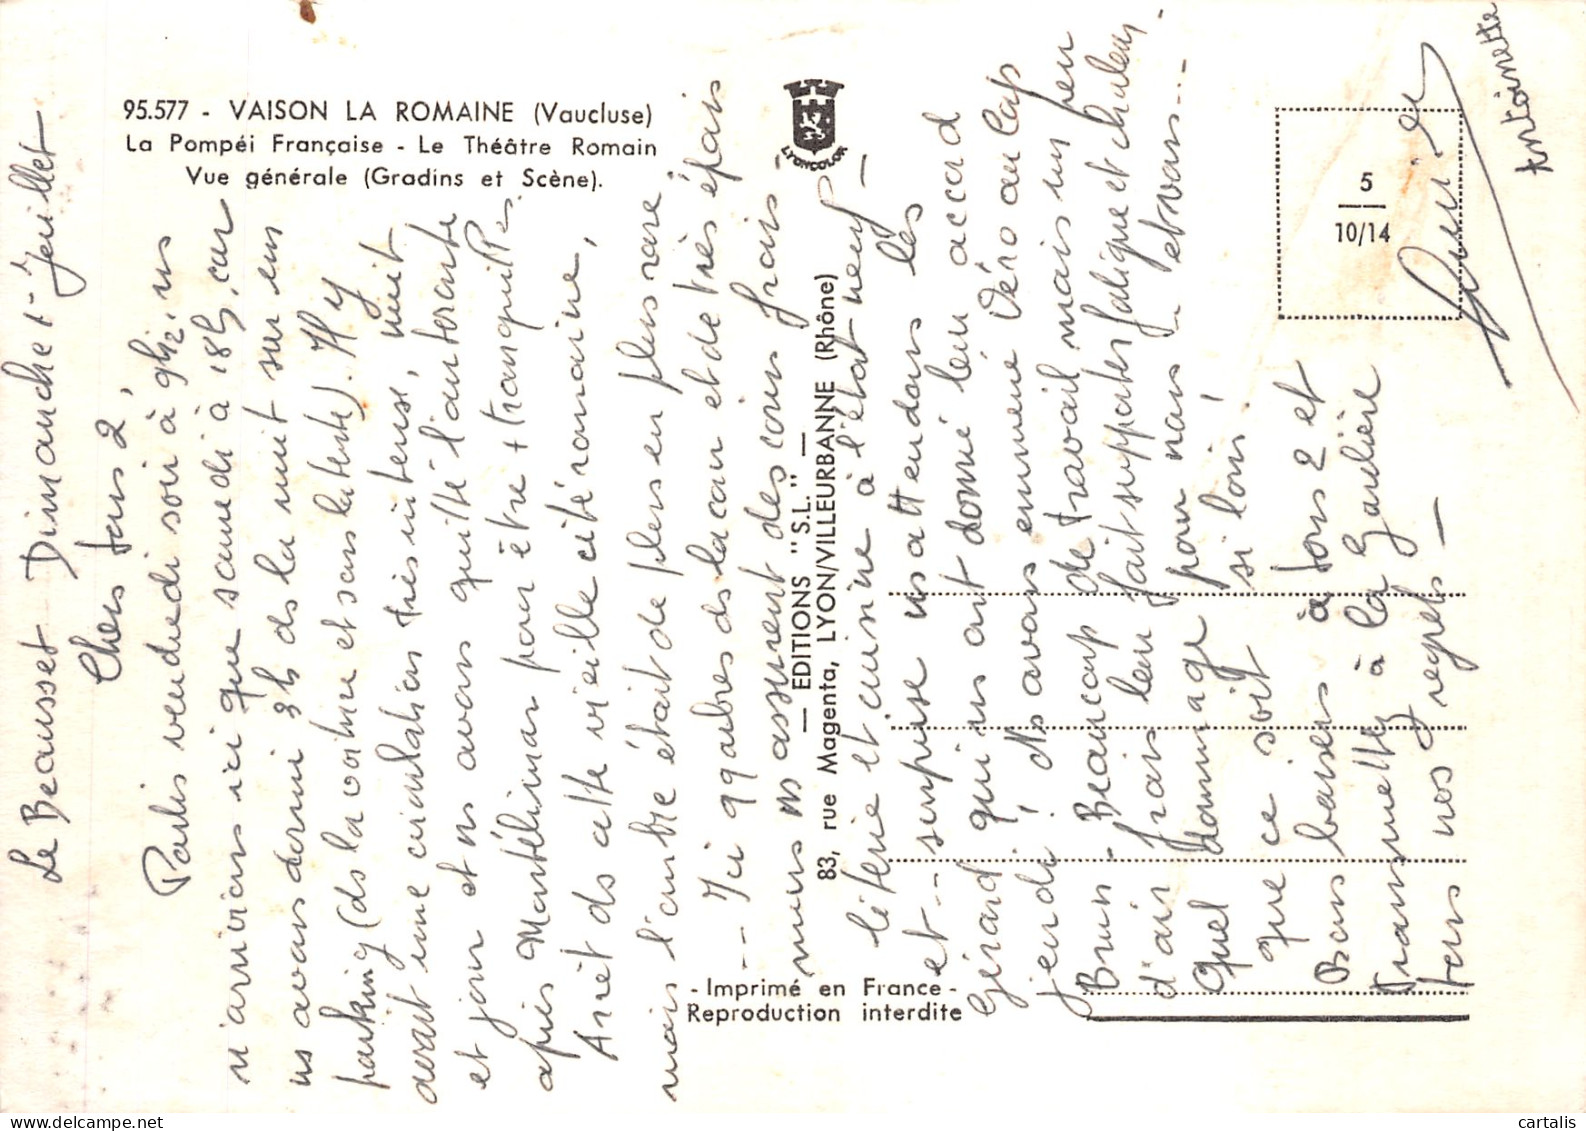 95.577 - VAISON LA ROMAINE (Vaucluse)
La Pompéi Française - Le Théâtre Romain
Vue générale (Gradins et Scène).
LYONCOLOR
— EDITIONS "S.L." —
83, rue Magenta, LYON/VILLEURBANNE (Rhône)
- Imprimé en France -
Reproduction interdite
5
10/14
Le Beausset Dimanche 1er Juillet
Chers tous 2,
Partis vendredi soir à 9h1/2, ns
n'arrivions ici que samedi à 18h, car
ns avons dormi 3h ds la nuit sur un
parking (ds la voiture et sans la tente). Il y
avait une circulation très intense, nuit
et jour et ns avons quitté l'autoroute
après Montélimar pour être + tranquilles.
Arrêt ds cette vieille cité romaine,
mais l'ombre était de plus en plus rare
--- Ici 99 arbres ds le can et de très épais
murs ns assurent des coins frais -
literie et cuisine à l'état neuf -
et -- surprise ns attendons les
Gérard qui ns ont donné leur accord
jeudi, ns avons emmené Véro au Cap
Brun - Beaucoup de travail mais un peu
d'air frais leur fait supporter fatigue et chaleur -
Quel dommage pour nous - et vous ---
que ce soit si loin !
Bons baisers à tous 2 et
transmettez à la Gaudière
tous nos regrets -
Antoinette
cartalis